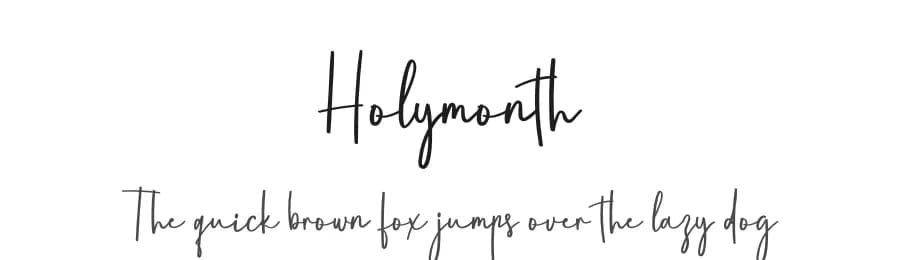 Holymonth
The quick brown fox jumps over the lazy dog